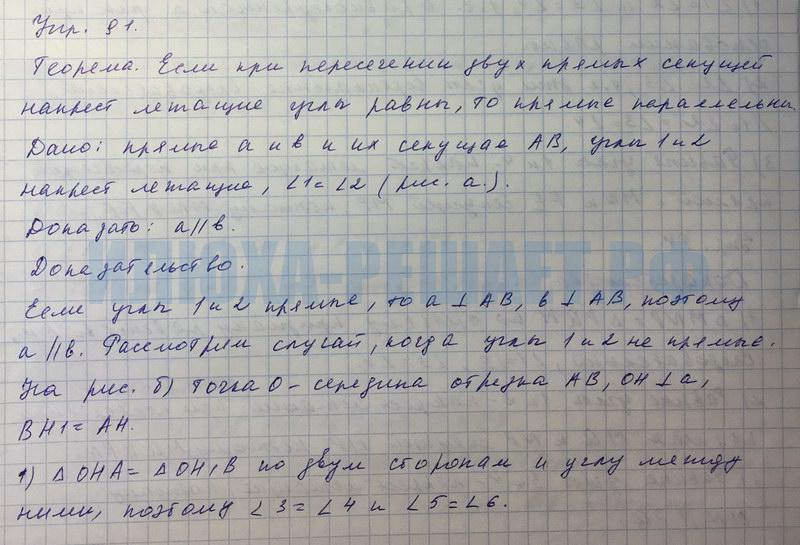 Упр. 91.
Теорема. Если при пересечении двух прямых секущей
накрест лежащие углы равны, то прямые параллельны.
Дано: прямые a и b и их секущая AB, углы 1 и 2
накрест лежащие, ∠1=∠2 (рис. а.).
Доказать: a||b.
Доказательство.
ИЛЮХА-РЕШАЕТ.РФ
Если углы 1 и 2 прямые, то a ⊥ AB, b ⊥ AB, поэтому
a||b. Рассмотрим случай, когда углы 1 и 2 не прямые.
На рис. б) точка O - середина отрезка AB, OH⊥a,
BH1 = AH.
1) △OHA = △OH1B по двум сторонам и углу между
ними, поэтому ∠3=∠4 и ∠5=∠6.